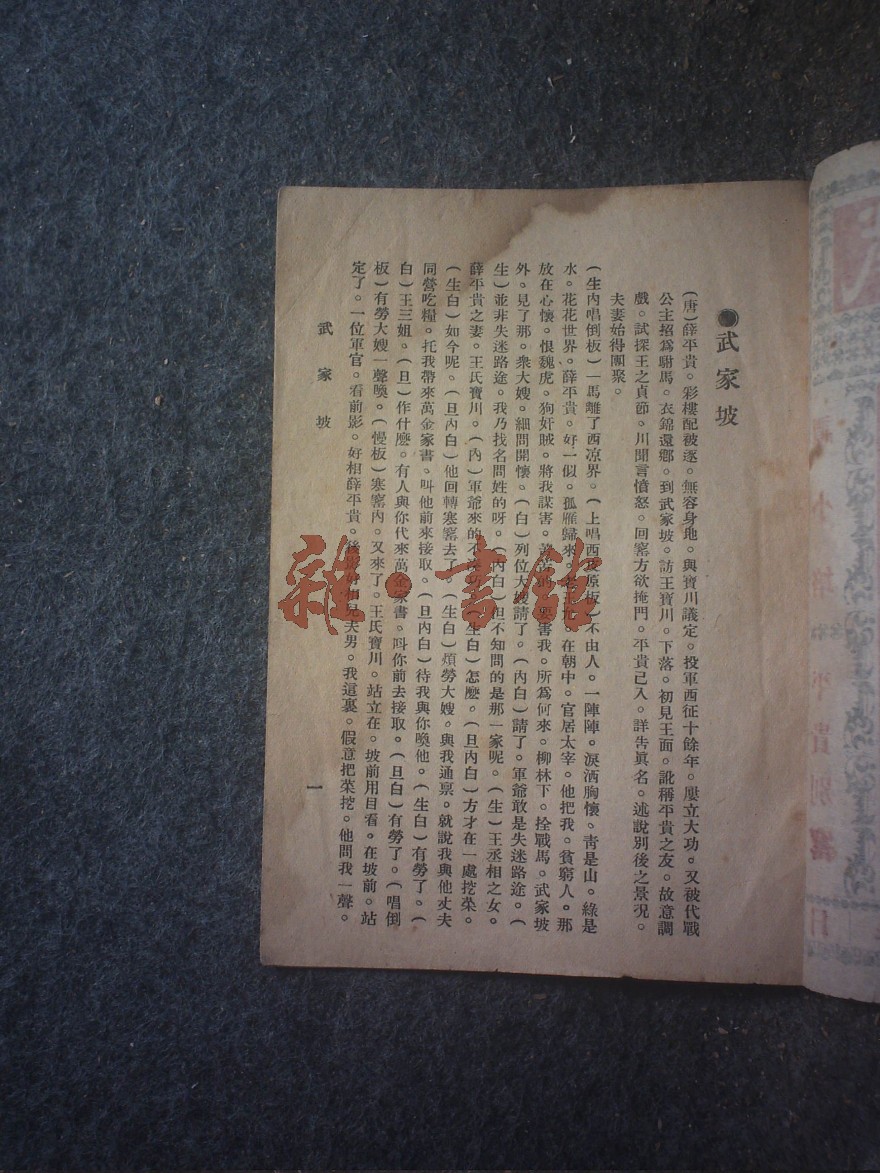 ●武家坡
(唐)薛平貴。彩樓配被逐。無容身地。與寶川議定。投軍西征十餘年。屢立大功。又被代戰
公主招為駙馬。衣錦還鄉。到武家坡。訪王寶川。下落。初見王面。訛稱平貴之友。故意調
戲。試探王之貞節。川聞言憤怒。回窰方欲掩門。平貴已入。詳吿眞名。述說別後之景況。
夫妻始得團聚。
(生內唱倒板)一馬離了西凉界。(上唱西皮原板)不由人。一陣陣。淚洒胸懷。靑是山。綠是
水。花花世界。薛平貴。好一似。孤雁歸來。在朝中。官居太宰。他把我。貧窮人。那
放在心懷。恨魏虎。狗奸賊。將我謀害。要害我。所為何來。柳林下。拴戰馬。武家坡
外。見了那。衆大嫂。細問開懷。(白)列位大嫂請了。(內白)請了。軍爺敢是失迷路途。(
生)並非失迷路途。我乃找名問姓的呀。(內白)但不知問的是那一家呢。(生)王丞相之女。
薛平貴之妻。王氏寶川。(內)軍爺來的不(生白)怎麽。(旦內白)方才在一處挖菜。
(生白)如今呢。(旦內白)他回轉寒窰去了。(生白)煩勞大嫂。與我通禀。就說我與他丈夫
同營吃糧。托我帶來萬金家書。叫他前來接取。(旦內白)待我與你喚他。(生白)有勞了。(
白)王三姐。(旦)作什麽。有人與你代來萬金家書。叫你前去接取。(旦白)有勞了。(唱倒
板)有勞大嫂一聲喚。(慢板)寒窰內。又來了。王氏寶川。站立在。坡前用目看。在坡前。站
定了。一位軍官。看前影。好相薛平貴。後夫男。我這裏。假意把菜挖。他問我一聲。
武家坡
一
平貴別窰